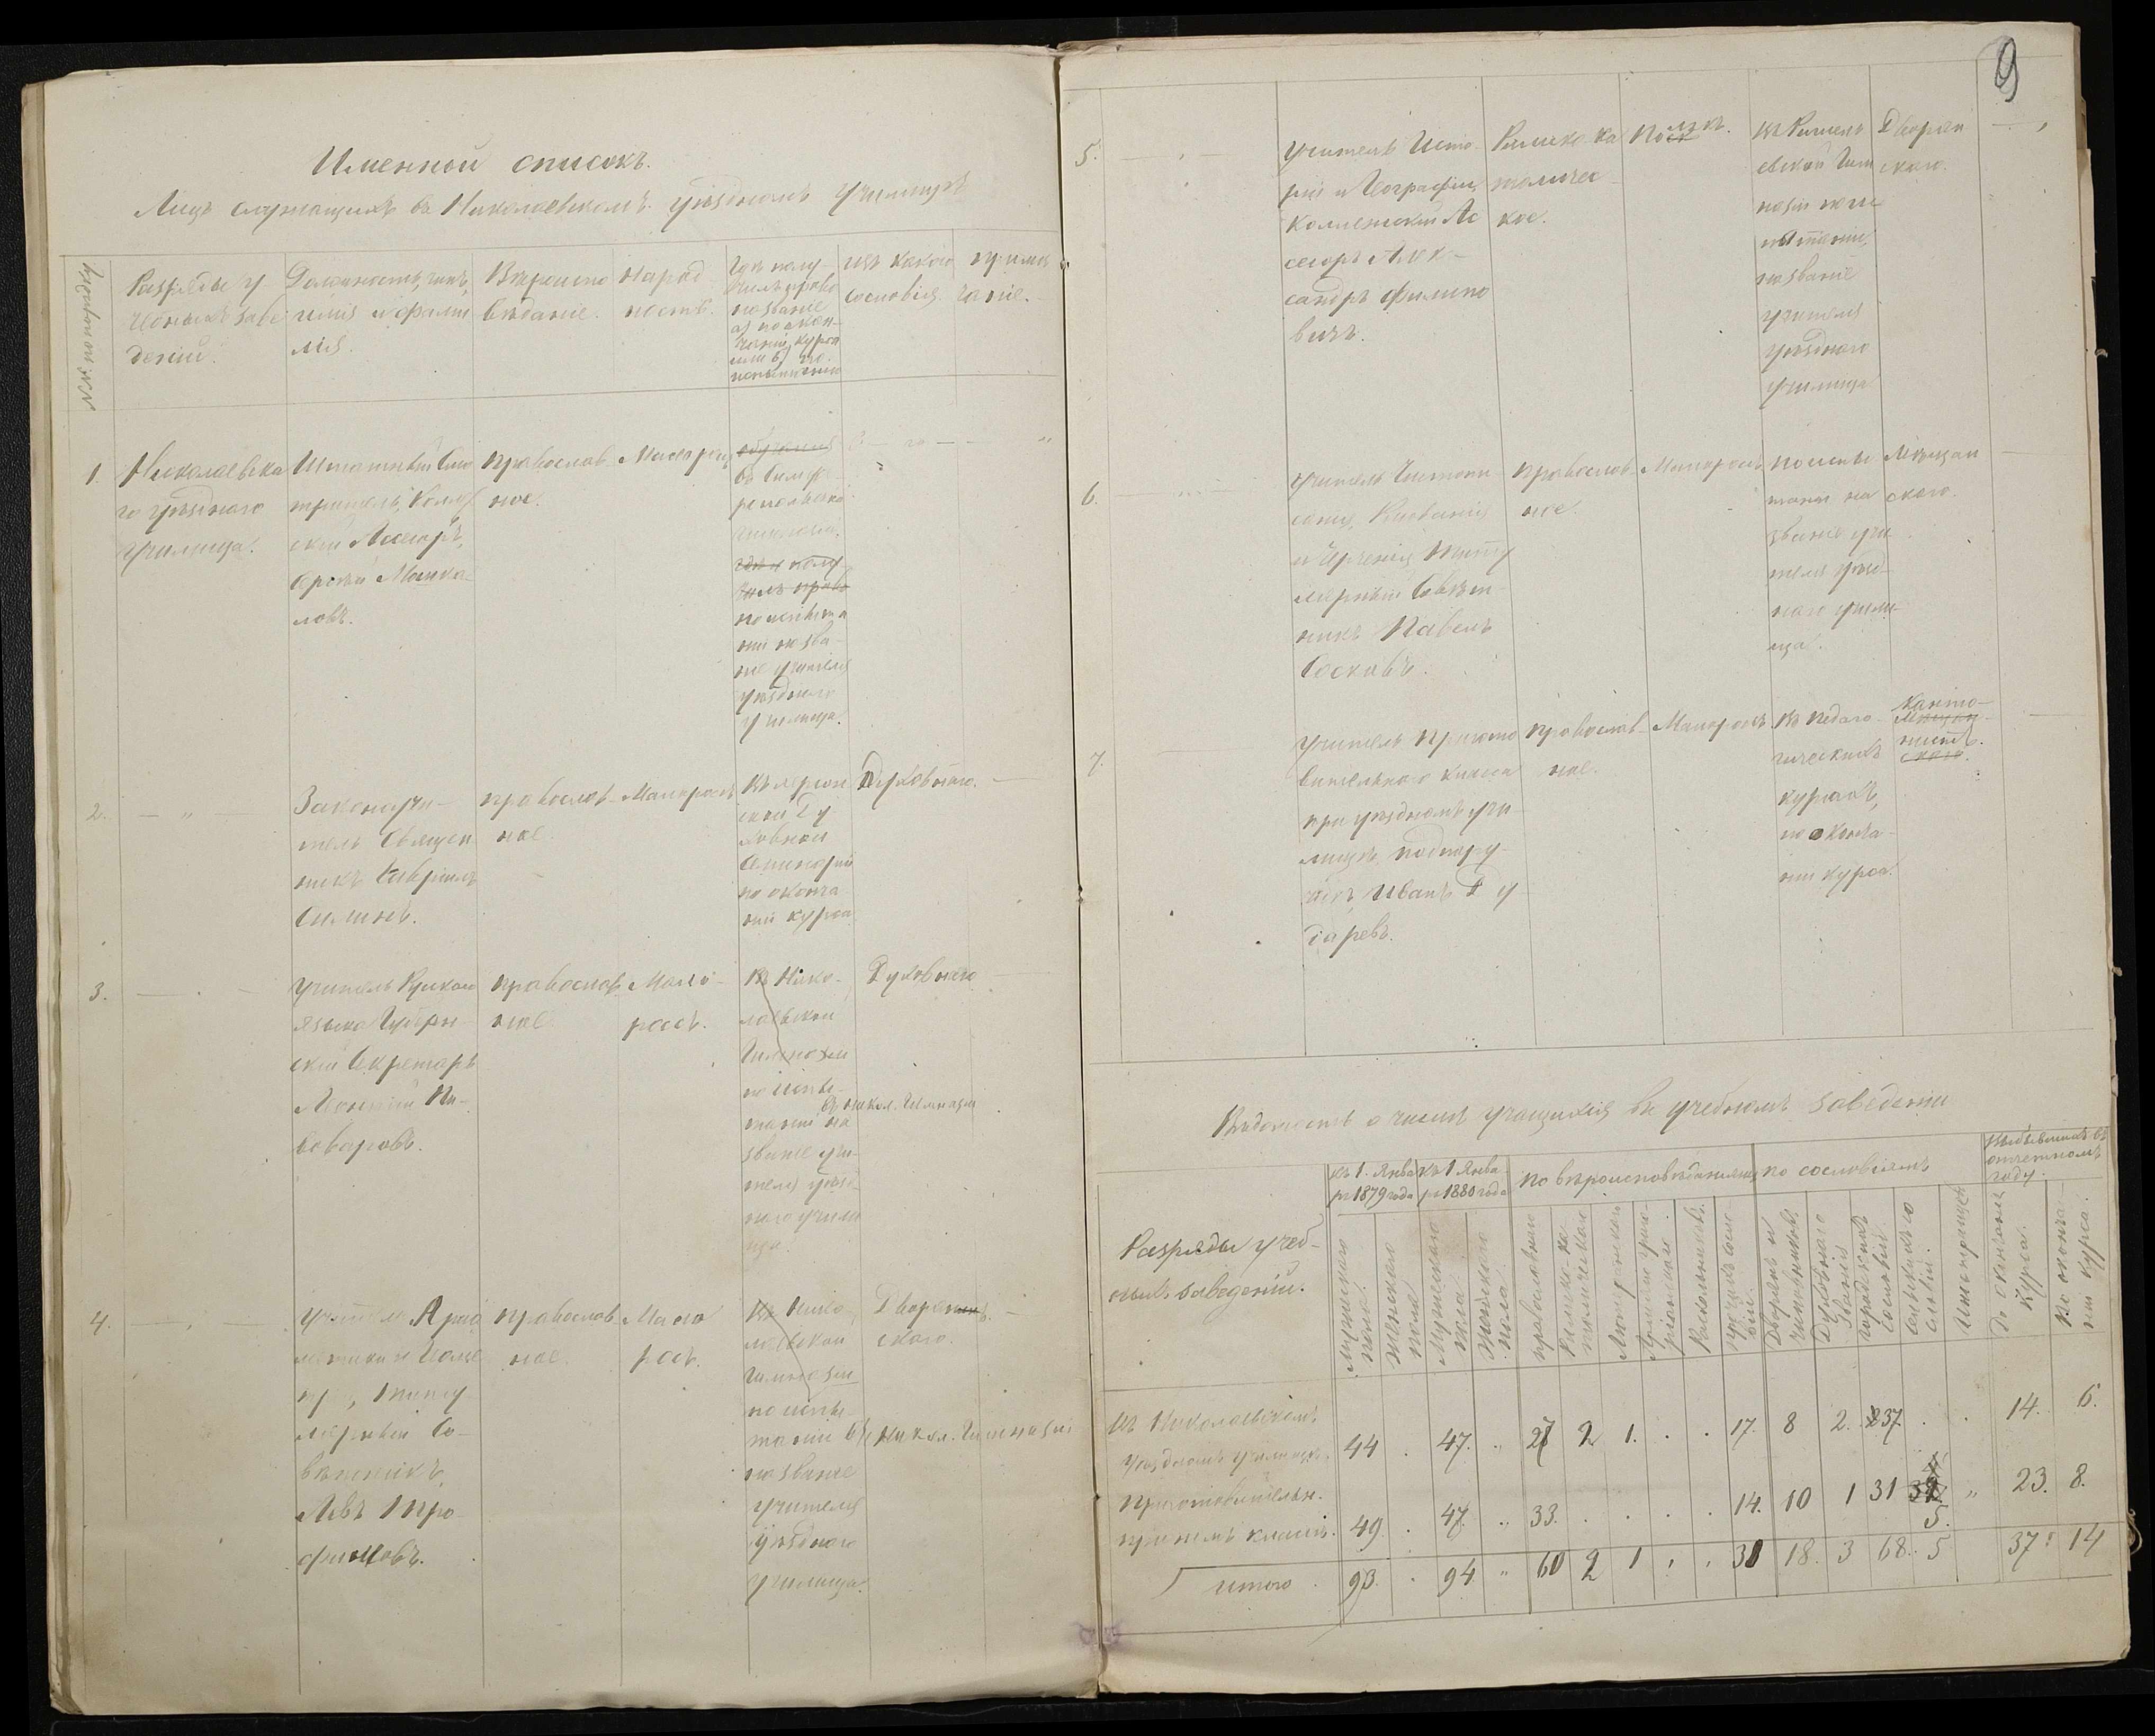 9
Именной списокъ.
Лицъ служащихъ въ Николаевскомъ уѣздномъ Училищѣ
№№ по порядку
Разряды у
чебныхъ заве
деній.
Должность, чинъ,
имя и фами
лія.
Вѣроиспо
вѣданіе.
Народ
ность.
Гдѣ полу
чилъ право
на званіе
а) по окон-
чаніи курса
или б) по
испытанію
изъ какого
сословія.
примѣ
чаніе.
1.
Николаевска
го уѣзднаго
Училища.
Штатный Смо
тритель, Коллеж
скій Ассесоръ,
Сергѣй Манжа
ловъ.
православ
ное.
Малорос
обученія
въ Симфе
ропольской
гимназіи,
гдѣ и полу
чилъ право
по испыта
нію на зва-
ніе учителя
уѣзднаго
училища.
2.
Законоучи-
тель Священ
никъ Гавріилъ
Силинъ.
православ
ное.
Малоросъ
Въ Херсон
ской Ду
ховной
Семинаріи
по оконча
ніи курса
Духовнаго.
3.
Учитель Русскаго
языка Губерн
скій Секретарь
православ
ное
Мало-
россъ.
Въ Нико-
лаевской
Гимназіи
по испы-
танію на
въ Никол. Гимназіи
званіе учи-
теля уѣзд-
наго учили
ща.
Духовнаго
4.
Учитель Ариѳ
метики и Геоме
тр , Титу
лярный Со-
вѣтникъ,
Левъ Тро-
фимовъ.
православ
ное.
Мало
россъ.
Въ Нико-
лаевской
Гимназіи
по испы-
танію въ Никол. Гимназіи
на званіе
учителя
уѣзднаго
училища.
Дворян
скаго.
5.
Учитель Исто-
ріи и Географіи,
Коллежскій Ас
сесоръ Алек-
сандръ Филипо
вичъ.
Римско-ка
толичес
кое.
Полякъ.
Въ Ришель
евской Гим
назіи по ис
пытанію,
на званіе
учителя
уѣзднаго
училища
Дворян
скаго.
6.
Учитель Чистопи
санія, Рисованія
и Черченія Титу
лярный Совѣт-
никъ Павелъ
Сосковъ.
Православ
ное.
Малороссъ
по испы
танію на
званіе учи
теля уѣзд-
наго учили-
ща.
Мѣщан
скаго.
7.
Учитель Пригото
вительнаго класса
при уѣздномъ учи-
лищѣ, подпору-
чикъ Иванъ Ду
даревъ.
православ-
ное.
Малороссъ
Въ Педаго-
гическихъ
курсахъ,
по оконча-
ніи курса.
Канто-
нистъ.
Мѣщан
скаго.
Вѣдомость о числѣ учащихся въ учебномъ заведеніи
Разряды учеб-
ныхъ заведеній.
къ 1. Янва
ря 1879 года
къ 1 Янва-
ря 1880 года
по вѣроисповѣданіямъ
по сословіямъ
Выбывшихъ въ
отчетномъ
году.
Мужскаго
пола.
Женскаго
пола
Мужскаго
пола
Женскаго
пола.
православнаго
Римско-ка
толическаго
Лютеранскаго
Армяно-григо-
ріанскаго
Раскольниковъ.
Дворянъ и
чиновниковъ
Духовнаго
званія
Городскихъ
сословій
Сельскихъ со
словій.
Иностранцевъ
До окончанія
курса.
По оконча-
ніи курса.
Въ Николаевскомъ
уѣздномъ училищѣ.
44 . 47. „ 27 2 1. . . 17. 8 2. 37. . . 14. 6.
Приготовительн.
при немъ классъ.
49. . 47. „ 33. . . . . 14. 10 1 31 5. „ 23. 8.
итого . 93. . 94 „ 60 2 1 . . 31 18. 3 68. 5 37. 14